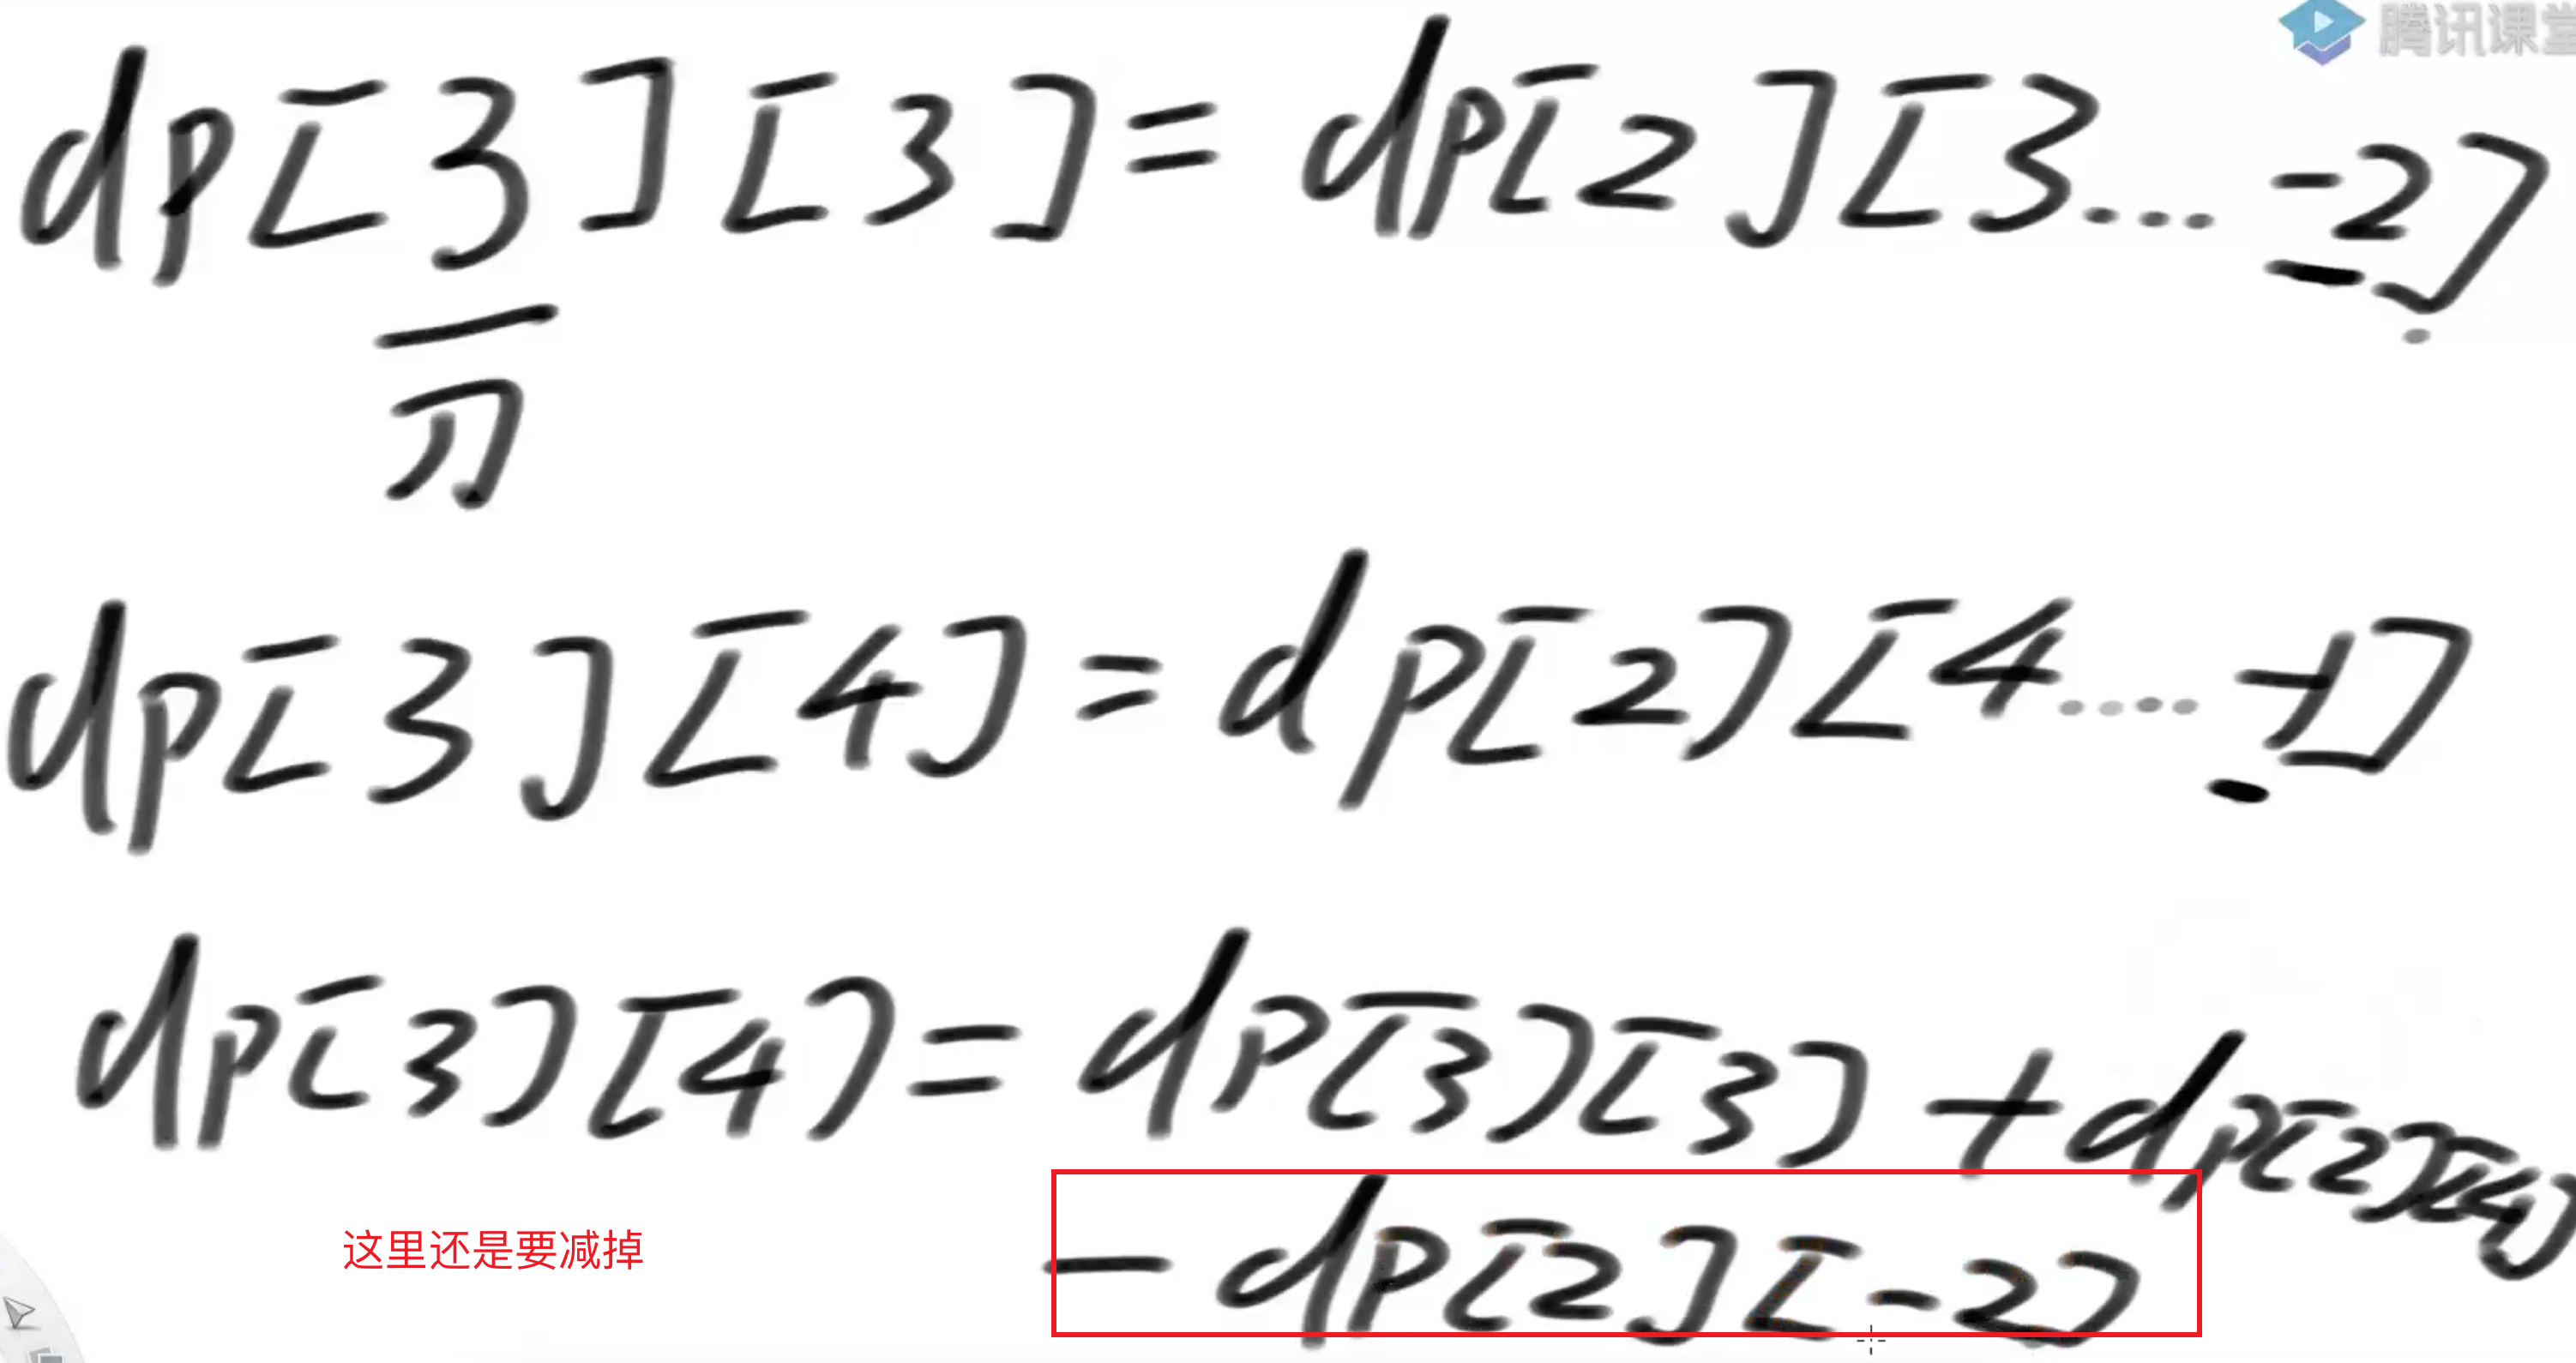 腾讯课堂
dp[3][3]= dp[2][3... -2]
刀
dp[3][4]= dp[2][4.... -1]
dp[3][4]= dp[3][3] + dp[2][4]
- dp[2][-2]
这里还是要减掉